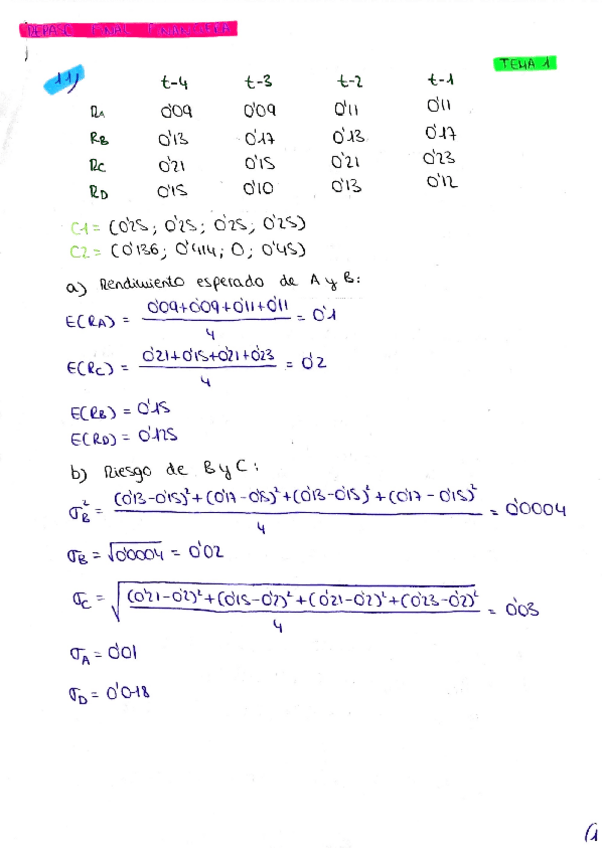 REPASO FINAL FINANCIERA
TEMA 1
11)
t-4 t-3 t-2 t-1
RA 0'09 0'09 0'11 0'11
RB 0'13 0'17 0'13 0'17
RC 0'21 0'15 0'21 0'23
RD 0'15 0'10 0'13 0'12
C1 = (0'25; 0'25; 0'25; 0'25)
C2 = (0'136; 0'414; 0; 0'45)
a) Rendimiento esperado de A y B:
E(RA) = 0'09+0'09+0'11+0'11 / 4 = 0'1
E(RC) = 0'21+0'15+0'21+0'23 / 4 = 0'2
E(RB) = 0'15
E(RD) = 0'125
b) Riesgo de B y C:
σB² = (0'13-0'15)²+(0'17-0'15)²+(0'13-0'15)²+(0'17-0'15)² / 4 = 0'0004
σB = √0'0004 = 0'02
σC = √(0'21-0'2)²+(0'15-0'2)²+(0'21-0'2)²+(0'23-0'2)² / 4 = 0'03
σA = 0'01
σD = 0'018
(1